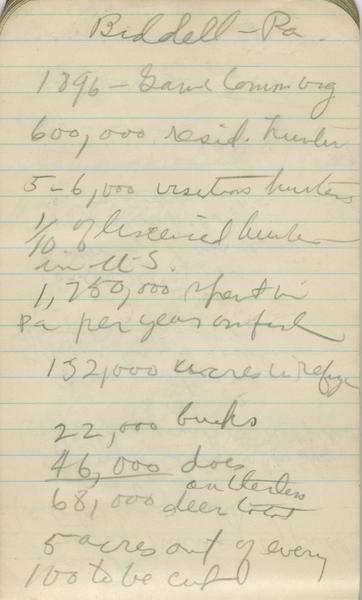 Biddell - Pa.
1896 - Game Comm org
600,000 resid. hunters
5-6,000 visitors hunters
1/10 of liscensed hunters
in U.S.
1,750,000 spent in
Pa per year on fish
152,000 acres in refuge
22,000 bucks
46,000 does
antlerless
68,000 deer total
5 acres out of every
100 to be cut